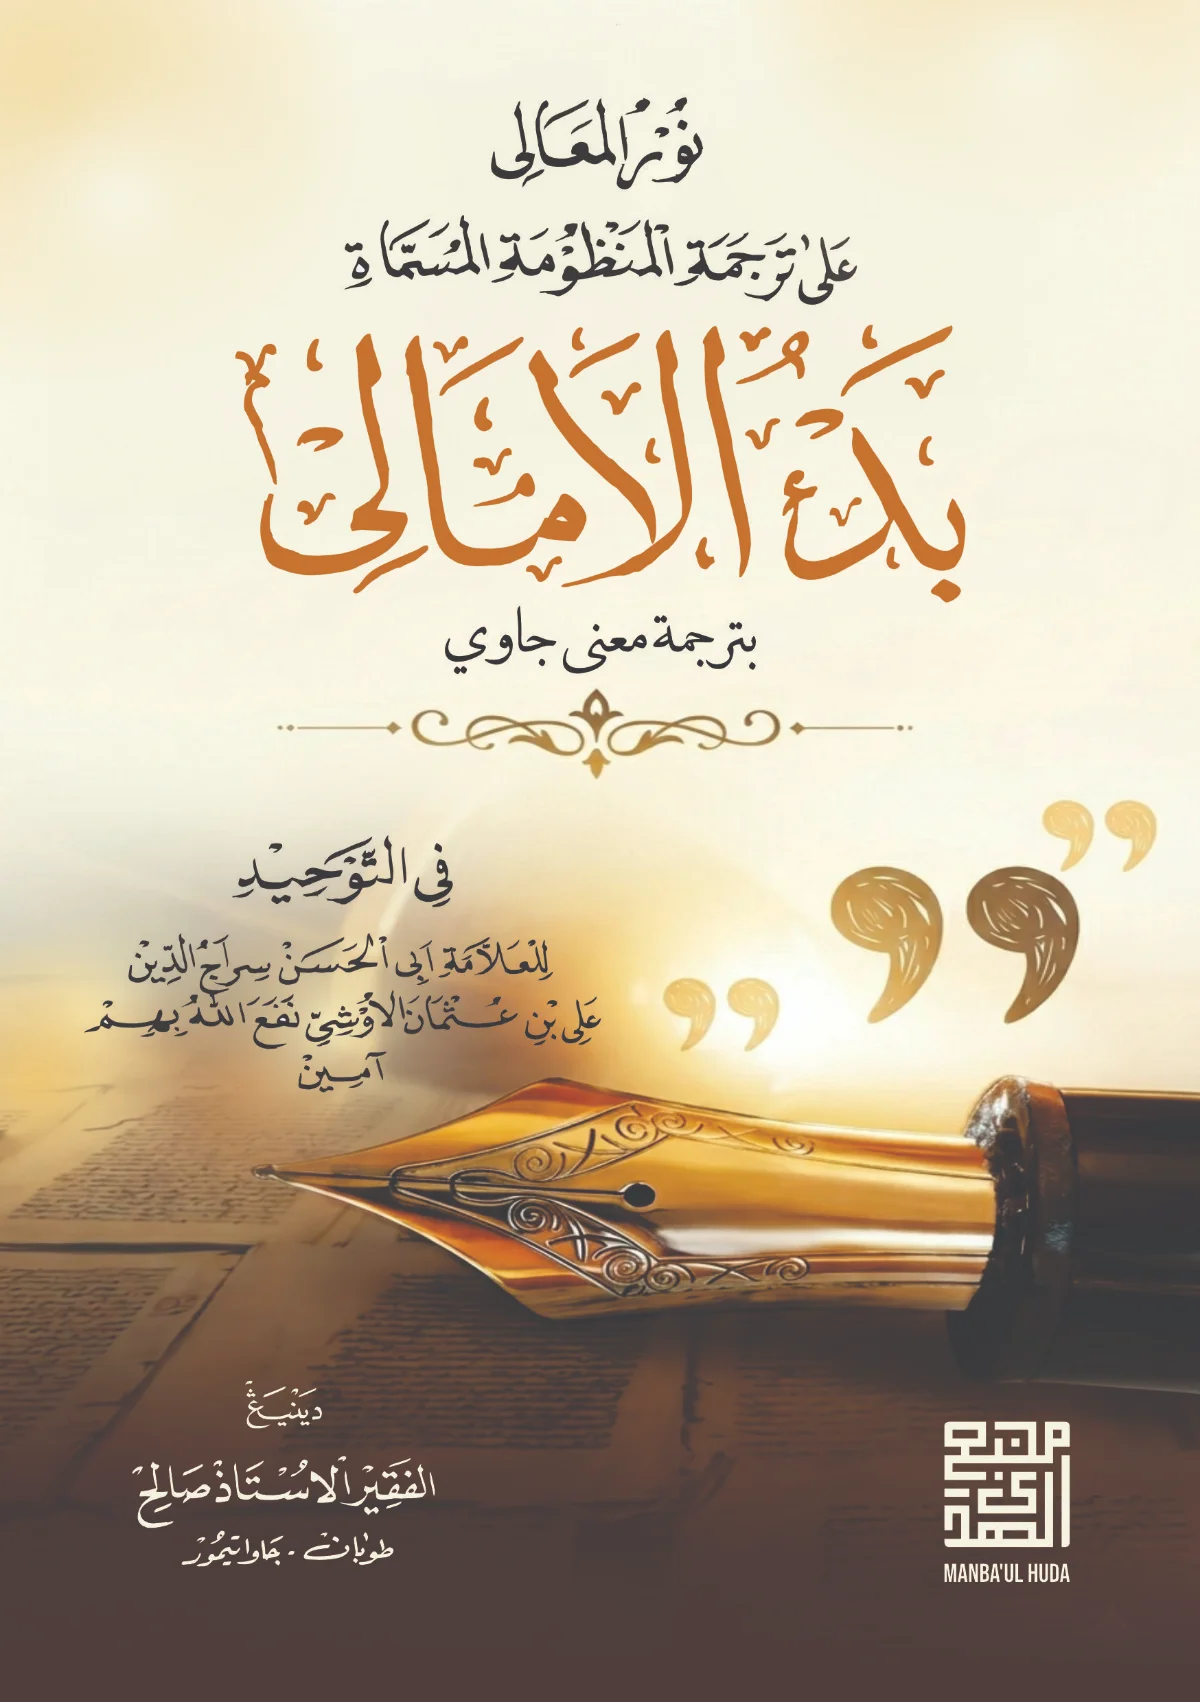 نُوْرُ المَعَالِى
عَلىٰ تَرْجَمَةِ الْمَنْظُوْمَةِ المُسَمَّاةِ
بَدْءُ الْاَمَالِىْ
بترجمة معنى جاوي
فِى التَّوْحِيْدِ
لِلْعَلاَّمَةِ اَبِى الْحَسَنْ سِرَاجُ الدِّيْن
عَلِى بْنِ عُـثْمَانَ الاُوْشِىِّ نَفَعَ اللهُ بِهِـمْ
آمـِيْن
دَيْنِيـڠْ
الفَقِيْر الْاُسْتَاذْ صَالِحْ
طوبان - جَاوا تيمُوْر
مَنبَع الهُدى
MANBA'UL HUDA